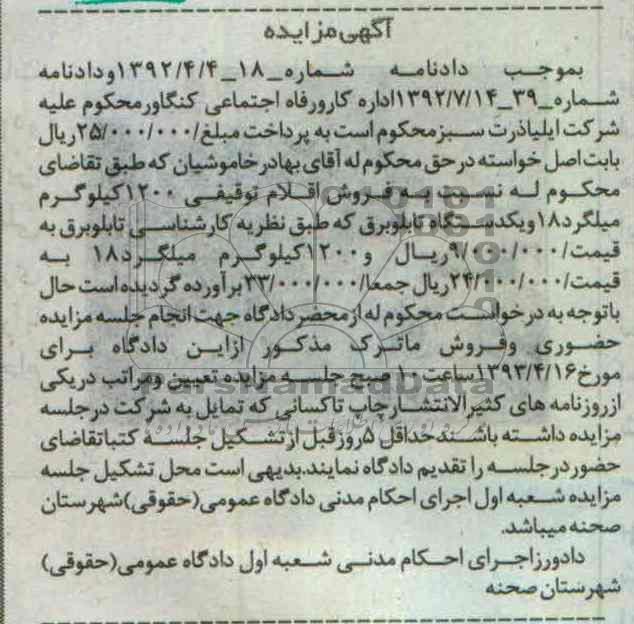 آگهی مزایده
بموجب دادنامه شماره_۱۸_۱۳۹۲/۴/۴ودادنامه
شماره_۳۹_۱۳۹۲/۷/۱۴اداره کارورفاه اجتماعی کنگاورمحکوم علیه
شرکت ایلیاذرت سبزمحکوم است به پرداخت مبلغ/۲۵/۰۰۰/۰۰۰ریال
بابت اصل خواسته درحق محکوم له آقای بهادرخاموشیان که طبق تقاضای
محکوم له نسبت به فروش اقلام توقیفی ۱۲۰۰کیلوگرم
میلگرد۱۸ویکدستگاه تابلوبرق که طبق نظریه کارشناسی تابلوبرق به
قیمت/۹/۰۰۰/۰۰۰ریال و۱۲۰۰کیلوگرم میلگرد۱۸ به
قیمت/۲۴/۰۰۰/۰۰۰ریال جمعا/۳۳/۰۰۰/۰۰۰برآورده گردیده است حال
باتوجه به درخواست محکوم له ازمحضردادگاه جهت انجام جلسه مزایده
حضوری وفروش ماترک مذکور ازاین دادگاه برای
مورخ۱۳۹۳/۴/۱۶ساعت ۱۰ صبح جلسه مزایده تعیین ومراتب دریکی
ازروزنامه های کثیرالانتشارچاپ تاکسانی که تمایل به شرکت درجلسه
مزایده داشته باشندحداقل ۵روزقبل ازتشکیل جلسه کتباتقاضای
حضوردرجلسه را تقدیم دادگاه نمایند.بدیهی است محل تشکیل جلسه
مزایده شعبه اول اجرای احکام مدنی دادگاه عمومی(حقوقی)شهرستان
صحنه میباشد.
دادورزاجرای احکام مدنی شعبه اول دادگاه عمومی(حقوقی)
شهرستان صحنه
ParsNamadData